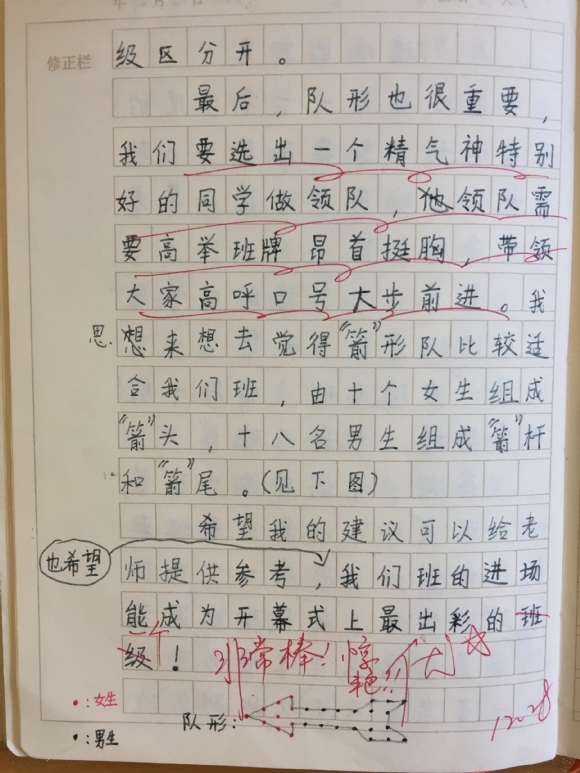 修正栏
级区分开。
最后,队形也很重要,
我们要选出一个精气神特别
好的同学做领队,他领队需
要高举班牌昂首挺胸,带领
大家高呼口号大步前进。我
思
想来想去觉得"箭"形队比较适
合我们班,由十个女生组成
"箭"头,十八名男生组成"箭"杆
和"箭"尾。(见下图)
希望我的建议可以给老
也希望
师提供参考,我们班的进场
能成为开幕式上最出彩的班
级!
一个
非常棒!惊艳!
•:女生
队形:
•:男生
12.28